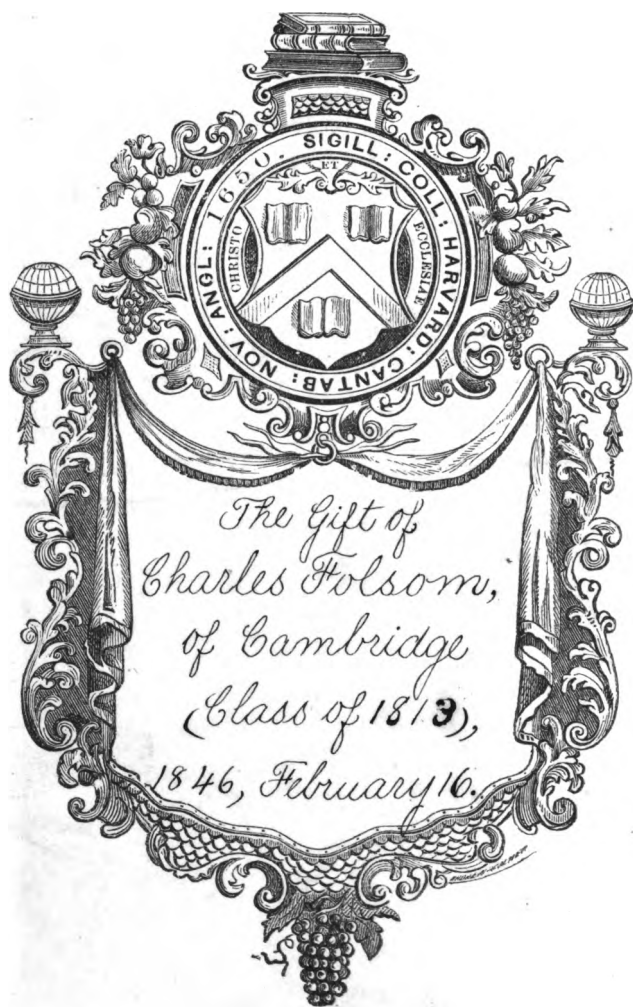 SIGILL: COLL: HARVARD: CANTAB: NOV: ANGL: 1650.
ET
CHRISTO
ECCLESIAE
The Gift of
Charles Folsom,
of Cambridge
(Class of 1813),
1846, February 16.